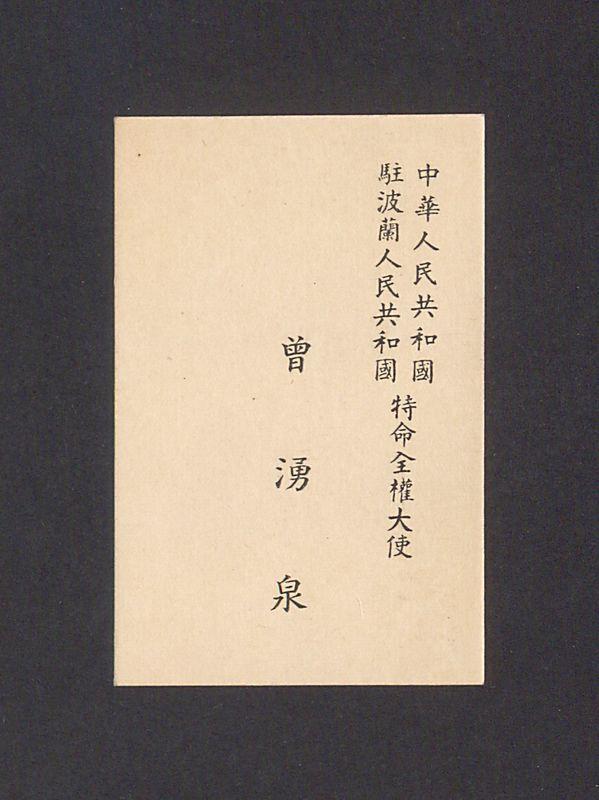 中華人民共和國
駐波蘭人民共和國
特命全權大使
曾湧泉